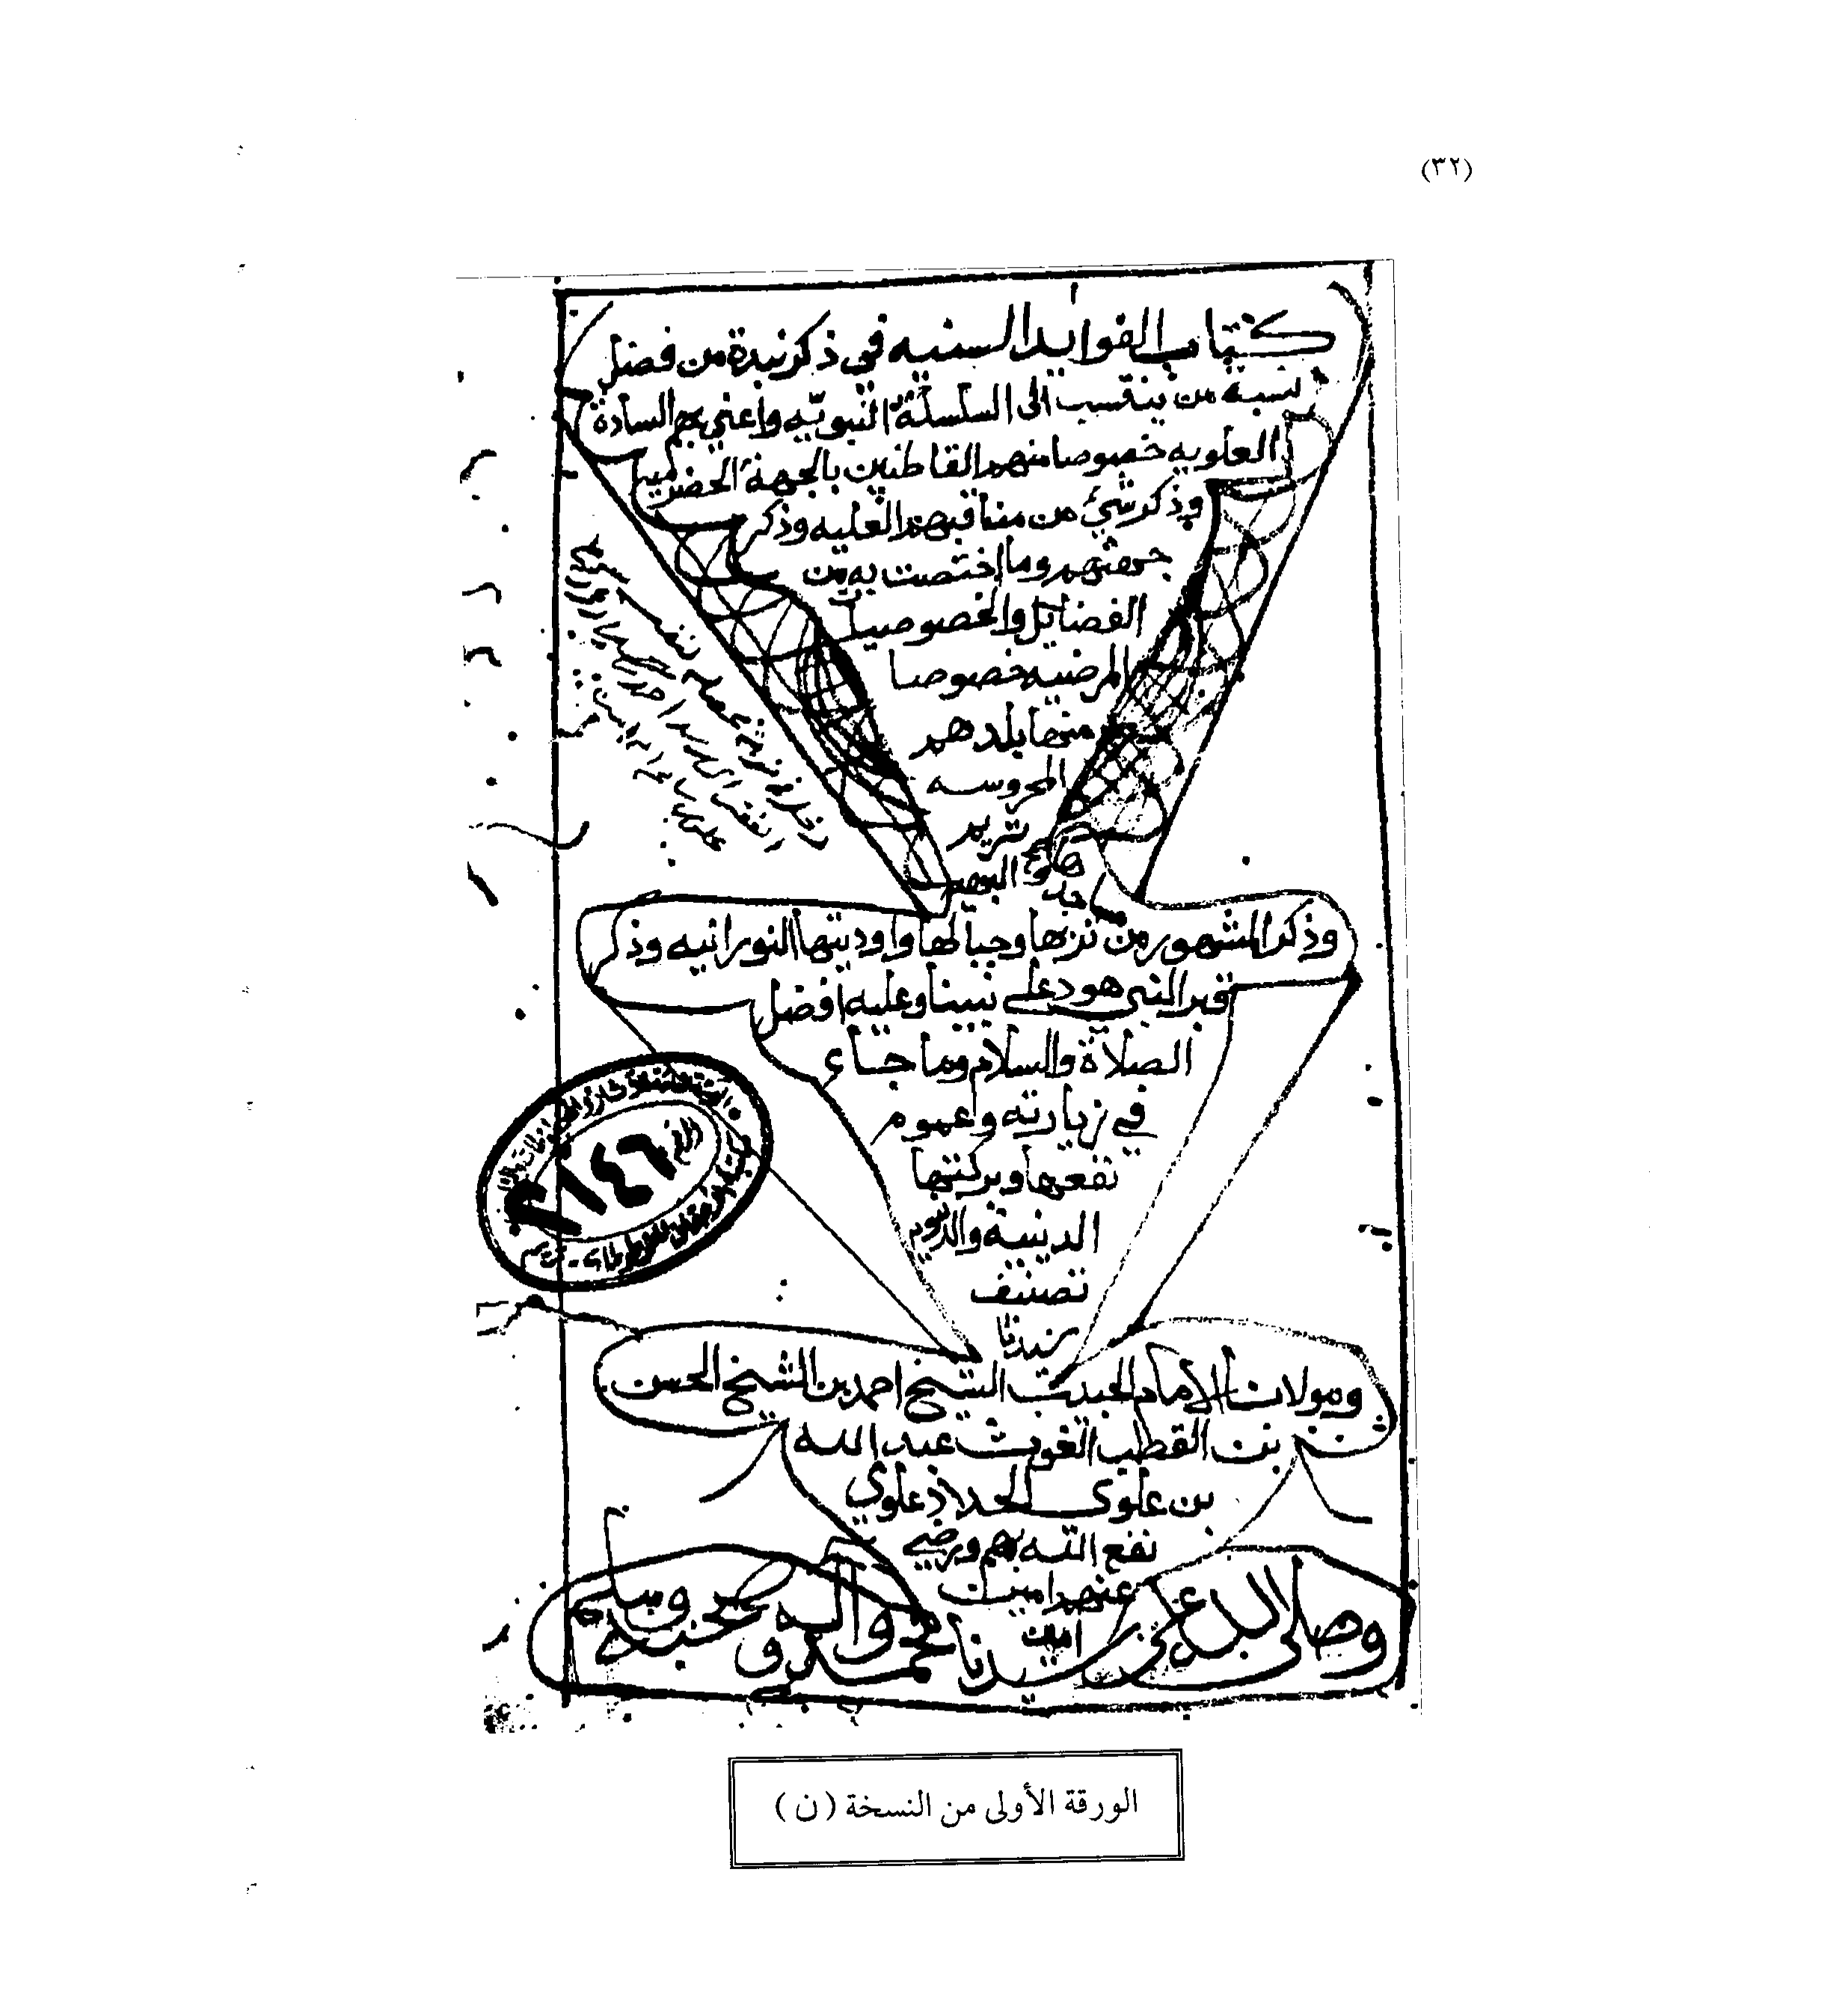 (٣٢)
كتاب الفوايد السنيه في ذكر نبذة من فضل
نسبة من ينتسب الى السلسلة النبويّه واعني بهم السادة
العلويه خصوصا منهم القاطنين بالجهة الحضرميه
وذكر شيء من مناقبهم العليه وذكر
جهتهم وما اختصت به من
الفضايل والخصوصيات
المرضيه خصوصا
منها بلدهم
المحروسه
تريم
البهيه
وذكر المشهور من تربها وجبالها واوديتها النورانيه وذكر
قبر النبي هود على نبينا وعليه افضل
الصلاة والسلام وما جاء
في زيارته وعموم
نفعها وبركتها
الدينية
تصنيف
سيدنا
ومولانا الامام الحبيب الشيخ احمد بن الشيخ الحسن
بن القطب الغوث عبد الله
بن علوي الحداد علوي
نفع الله بهم ورضي
عنهم امين
امين
وصلى الله على سيدنا محمد واله وصحبه وسلم
٢١٤٦
الورقة الأولى من النسخة (ن)